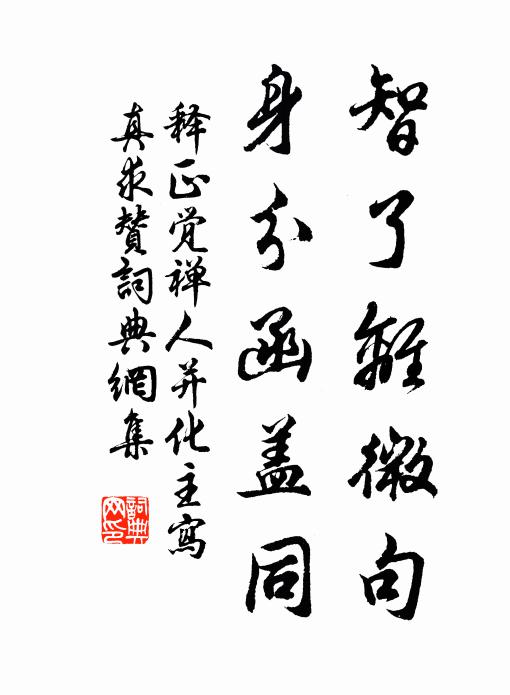 智了離微句
身分函盖同
释正觉禅人并化主寫
真求赞詞典網集
詞典網印